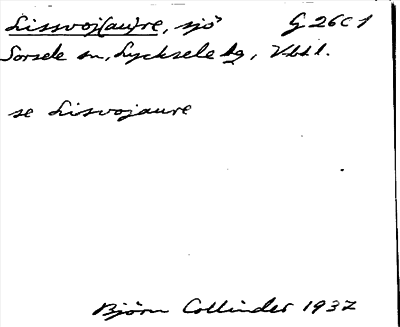 Lissvoj(au)re, sjö G 26C 1
Sorsele sn, Lycksele lg, Vbtl.
se Lisvojaure
Björn Collinder 1937